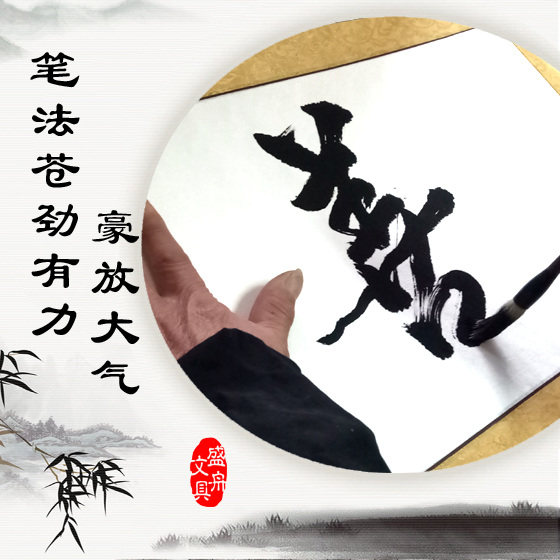 笔法苍劲有力
豪放大气
盛舟
文具